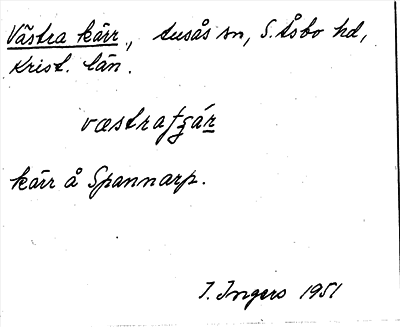 Västra kärr, Ausås sn, S. Åsbo hd,
Krist. län.
kärr å Spannarp.
I. Ingers 1951